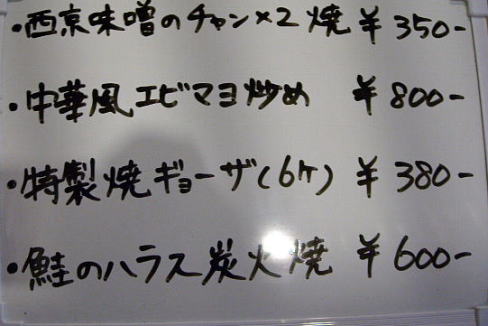 ・西京味噌のチャン×2焼 ¥350-
・中華風エビマヨ炒め ¥800-
・特製焼ギョーザ(6ヶ) ¥380-
・鮭のハラス炭火焼 ¥600-